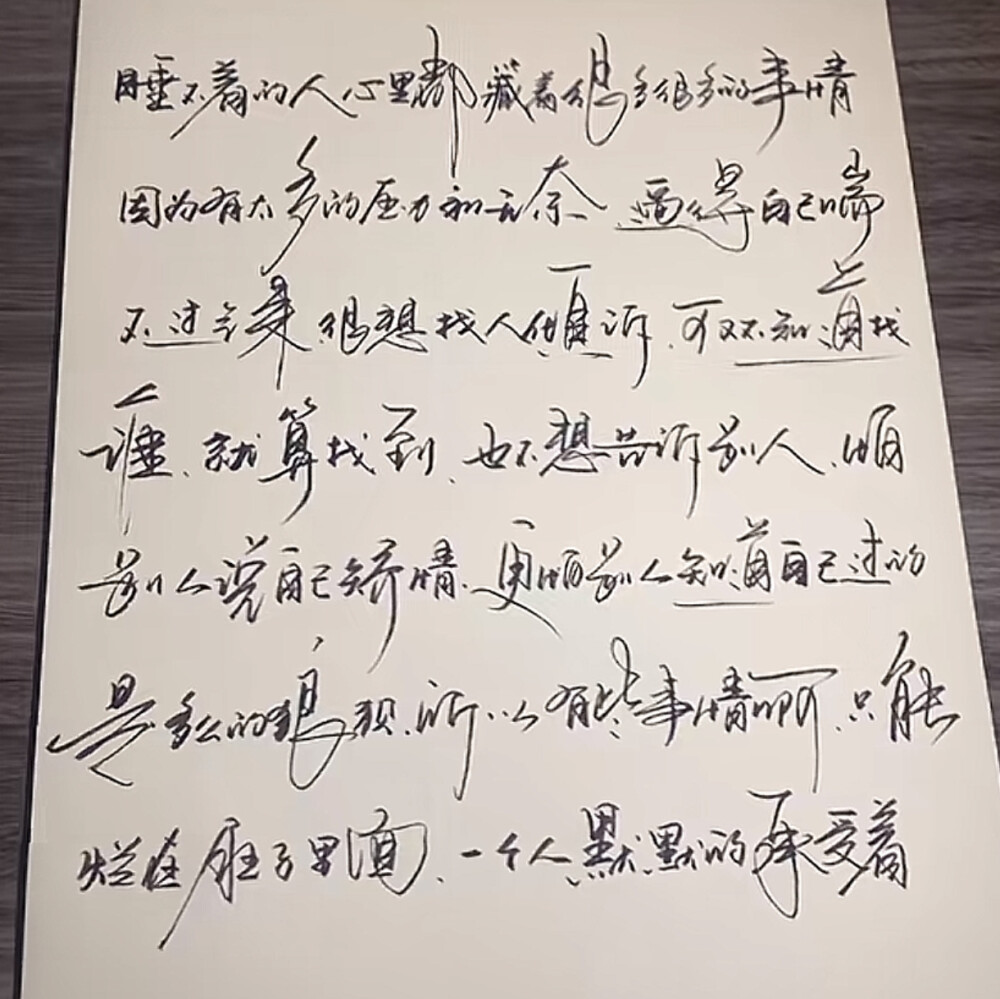 睡不着的人心里都藏着很多很多的事情
因为有太多的压力和无奈 逼得自己喘
不过气来 很想找人倾诉，可又不知道找
谁，就算找到，也不想告诉别人，怕
别人说自己矫情，更怕别人知道自己过的
是多么的狼狈，所以有些事情啊，只能
烂在肚子里面，一个人默默的承受着